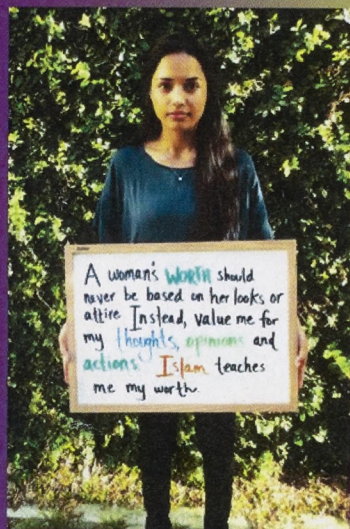 A woman's WORTH should
never be based on her looks or
attire. Instead, value me for
my thoughts, opinions and
actions. Islam teaches
me my worth.